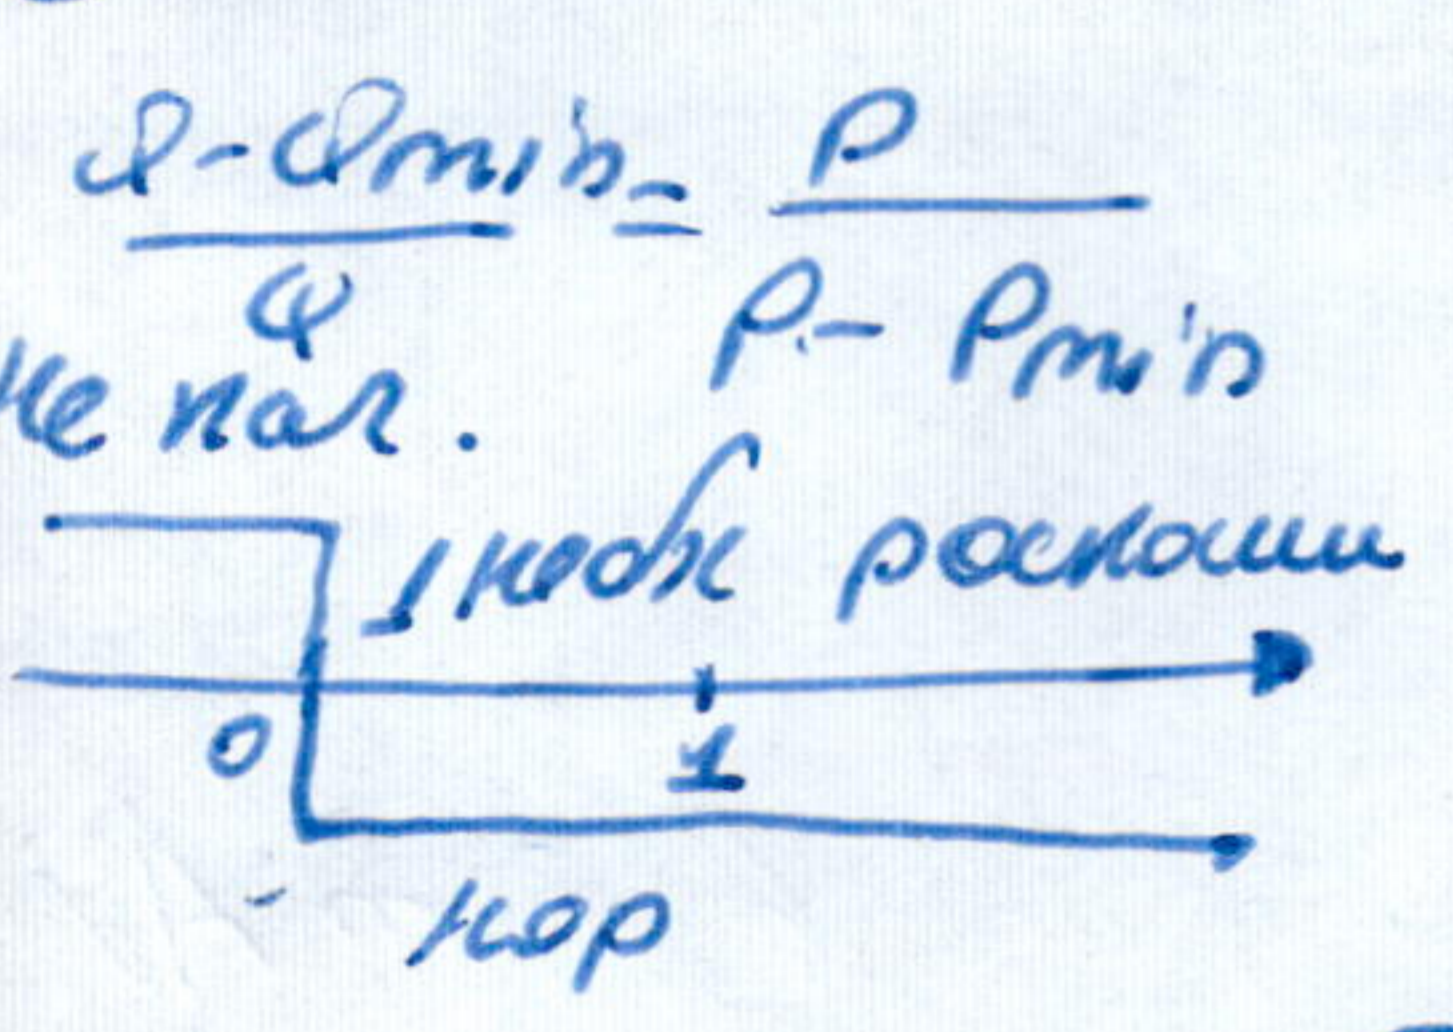 Q-Qmin = P
Q P-Pmin
не кач.
необх роскоши
0 1
нор